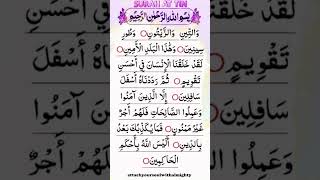 SURAH AT TIN
بِسْمِ اللهِ الرَّحْمٰنِ الرَّحِيْمِ
وَالتِّينِ وَالزَّيْتُونِ وَطُورِ
سِينِينَ وَهَٰذَا الْبَلَدِ الْأَمِينِ
لَقَدْ خَلَقْنَا الْإِنْسَانَ فِي أَحْسَنِ
تَقْوِيمٍ ثُمَّ رَدَدْنَاهُ أَسْفَلَ
سَافِلِينَ إِلَّا الَّذِينَ آمَنُوا
وَعَمِلُوا الصَّالِحَاتِ فَلَهُمْ أَجْرٌ
غَيْرُ مَمْنُونٍ فَمَا يُكَذِّبُكَ بَعْدُ
بِالدِّينِ أَلَيْسَ اللَّهُ بِأَحْكَمِ
الْحَاكِمِينَ
attachyoursoulwithalmighty